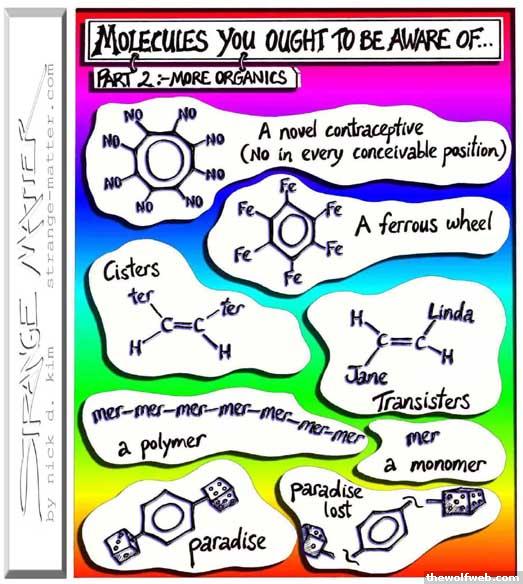 MOLECULES YOU OUGHT TO BE AWARE OF...
PART 2:-MORE ORGANICS
NO NO
NO NO
NO NO
NO NO
A novel contraceptive
(No in every conceivable position)
Fe
Fe Fe
Fe Fe
Fe
A ferrous wheel
Cisters
ter ter
C=C
H H
H Linda
C=C
Jane H
Transisters
mer-mer-mer-mer-mer-mer-mer
a polymer
mer
a monomer
paradise
paradise
lost
STRANGE MATTER
strange-matter.com
by nick d. kim
thewolfweb.com